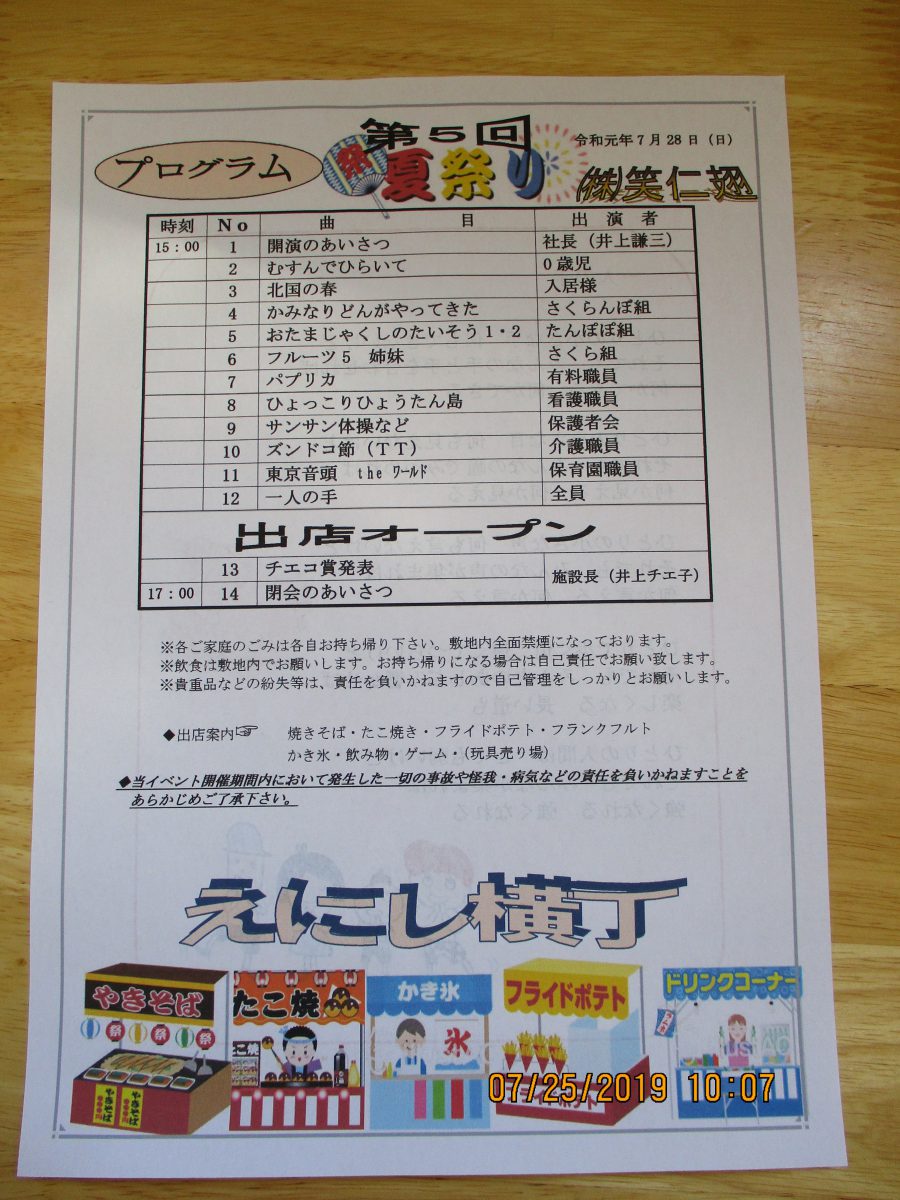 プログラム
第5回
祭
夏祭り
令和元年7月28日（日）
㈱笑仁翅
時刻 No 曲 目 出 演 者
15：00 1 開演のあいさつ 社長（井上謙三）
2 むすんでひらいて 0歳児
3 北国の春 入居様
4 かみなりどんがやってきた さくらんぼ組
5 おたまじゃくしのたいそう1・2 たんぽぽ組
6 フルーツ5 姉妹 さくら組
7 パプリカ 有料職員
8 ひょっこりひょうたん島 看護職員
9 サンサン体操など 保護者会
10 ズンドコ節（TT） 介護職員
11 東京音頭 the ﾜｰﾙﾄﾞ 保育園職員
12 一人の手 全員
出店オープン
13 チエコ賞発表 施設長（井上チエ子）
17：00 14 閉会のあいさつ
※各ご家庭のごみは各自お持ち帰り下さい。敷地内全面禁煙になっております。
※飲食は敷地内でお願いします。お持ち帰りになる場合は自己責任でお願い致します。
※貴重品などの紛失等は、責任を負いかねますので自己管理をしっかりとお願いします。
◆出店案内☞ 焼きそば・たこ焼き・フライドポテト・フランクフルト
かき氷・飲み物・ゲーム・（玩具売り場）
◆当イベント開催期間内において発生した一切の事故や怪我・病気などの責任を負いかねますことを
あらかじめご了承下さい。
えにし横丁
やきそば
祭 祭 祭
やきそば
やきそば
たこ焼
こ焼
かき氷
氷
フライドポテト
フライドポテト
ドリンクコーナー
07/25/2019 10:07